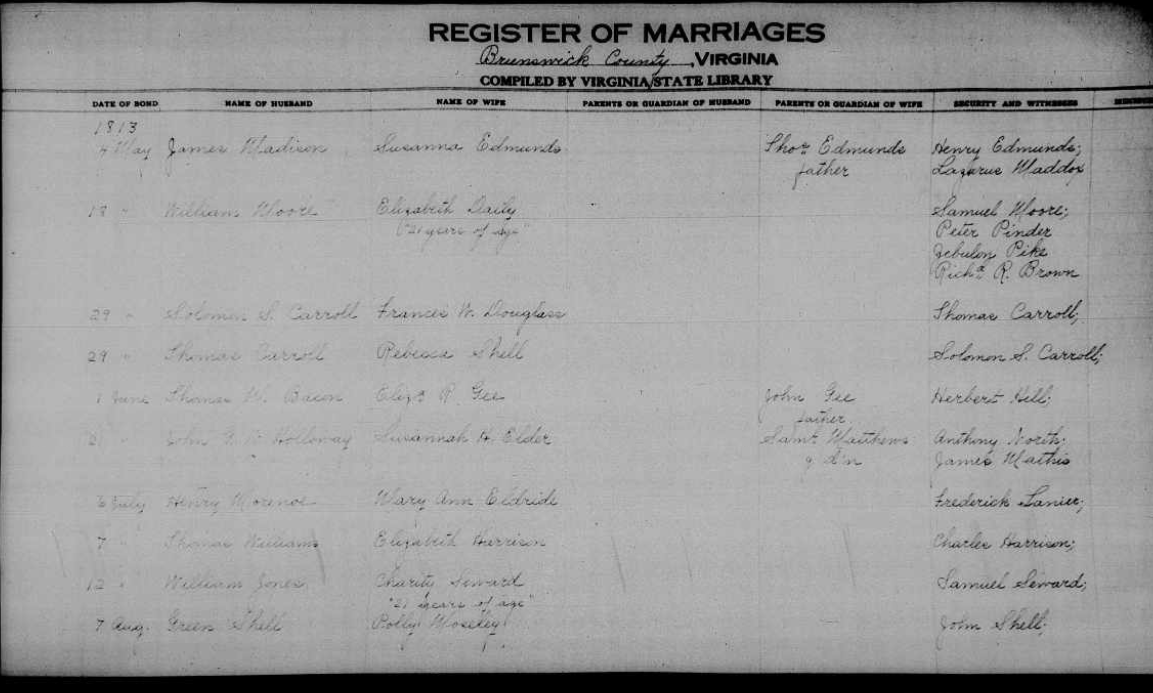 REGISTER OF MARRIAGES
Brunswick County, VIRGINIA
COMPILED BY VIRGINIA STATE LIBRARY
DATE OF BOND NAME OF HUSBAND NAME OF WIFE PARENTS OR GUARDIAN OF HUSBAND PARENTS OR GUARDIAN OF WIFE SECURITY AND WITNESSES
1813
4 May James Madison Susanna Edmunds Thos Edmunds Henry Edmunds;
father Lazarus Maddox
18 " William Moore Elizabeth Daily Samuel Moore;
"21 years of age" Peter Pinder
Zebulon Pike
Richd R. Brown
29 " Solomon S. Carroll Frances W. Douglass Thomas Carroll;
29 " Thomas Carroll Rebecca Shell Solomon S. Carroll;
1 June Thomas W. Bacon Elizb R. Gee John Gee Herbert Hill;
father
" John G. Holloway Susannah H. Elder Saml Matthews Anthony North;
g'd'n James Mathis
6 July Henry Morence Mary Ann Eldride Frederick Lanier;
7 " Thomas Williams Elizabeth Harrison Charles Harrison;
12 " William Jones Charity Seward Samuel Seward;
"21 years of age"
7 Aug. Green Shell Polly Moseley John Shell;